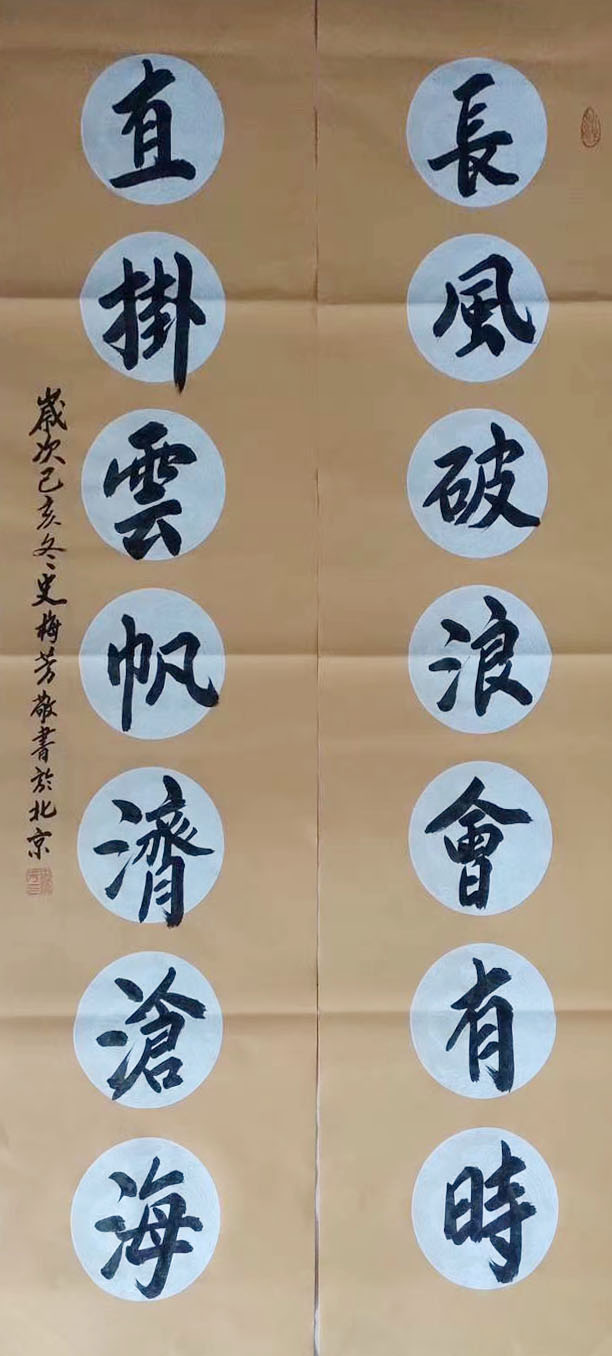 長風破浪會有時
直掛雲帆濟滄海
歲次己亥冬史梅芳敬書於北京